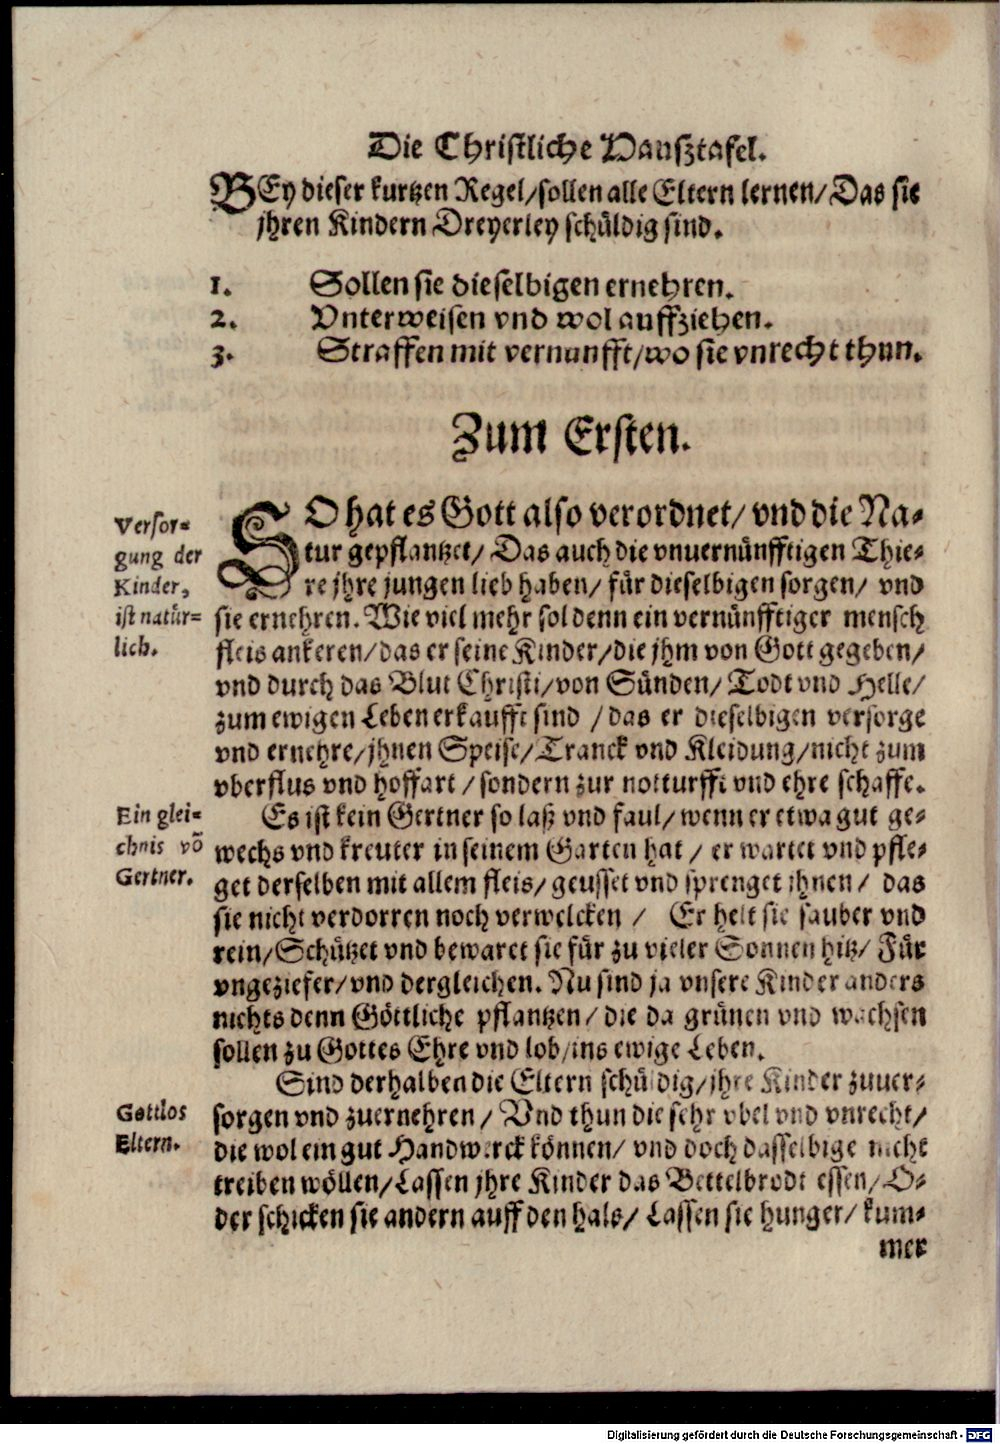 Die Christliche Hausztafel.
BEy dieser kurtzen Regel/sollen alle Eltern lernen/Das sie
jhren Kindern Dreyerley schüldig sind.
1. Sollen sie dieselbigen ernehren.
2. Vnterweisen vnd wol auffziehen.
3. Straffen mit vernunfft/wo sie vnrecht thun.
Zum Ersten.
SO hat es Gott also verordnet/ vnd die Na-
tur gepflantzet/ Das auch die vnuernünfftigen Thie-
re jhre jungen lieb haben/ für dieselbigen sorgen/ vnd
sie ernehren. Wie viel mehr sol denn ein vernünfftiger mensch
fleis ankeren/das er seine Kinder/die jhm von Gott gegeben/
vnd durch das Blut Christi/von Sünden/ Todt vnd Helle/
zum ewigen Leben erkaufft sind /das er dieselbigen versorge
vnd ernehre/jhnen Speise/Tranck vnd Kleidung/nicht zum
vberflus vnd hoffart /sondern zur notturfft vnd ehre schaffe.
Es ist kein Gertner so laß vnd faul/ wenn er etwa gut ge-
wechs vnd kreuter in seinem Garten hat / er wartet vnd pfle-
get derselben mit allem fleis/ geusset vnd sprenget jhnen/ das
sie nicht verdorren noch verwelcken / Er helt sie sauber vnd
rein/Schützet vnd bewaret sie für zu vieler Sonnen hitz/ Für
vngeziefer/vnd dergleichen. Nu sind ja vnsere Kinder anders
nichts denn Göttliche pflantzen/ die da grünen vnd wachsen
sollen zu Gottes Ehre vnd lob/ins ewige Leben.
Sind derhalben die Eltern schüldig/jhre Kinder zuuer-
sorgen vnd zuernehren/ Vnd thun die sehr vbel vnd vnrecht/
die wol ein gut Handwerck können/ vnd doch dasselbige nicht
treiben wöllen/Lassen jhre Kinder das Bettelbrodt essen/O-
der schicken sie andern auff den hals/ Lassen sie hunger/ kum-
mer
Versor-
gung der
Kinder,
ist natür-
lich.
Ein glei-
chnis võ
Gertner.
Gottlos
Eltern.
Digitalisierung gefördert durch die Deutsche Forschungsgemeinschaft - DFG